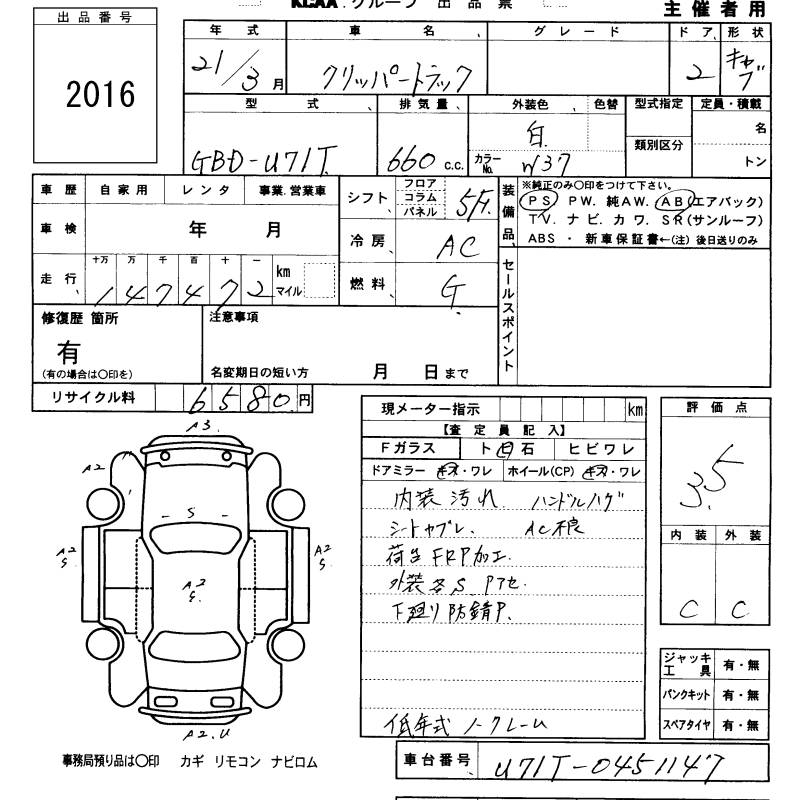 KCAA グループ 出品票
主催者用
出品番号
2016
年式 車名 グレード ドア 形状
21/3月 クリッパートラック 2 キャブ
型式 排気量 外装色 色替 型式指定 定員・積載
GBD-U71T 660 c.c. 白 カラーNo. W37 類別区分 名
トン
車歴 自家用 レンタ 事業.営業車
車検 年 月
走行 十万 万 千 百 十 一
147472 km マイル
シフト フロア コラム パネル 5F.
冷房 AC
燃料 G
装備品
※純正のみ〇印をつけて下さい。
PS PW. 純AW. AB(エアバック)
TV. ナビ. カワ. SR(サンルーフ)
ABS ・ 新車保証書←(注) 後日送りのみ
セールスポイント
修復歴 箇所
有
(有の場合は〇印を)
注意事項
名変期日の短い方 月 日まで
リサイクル料 6580円
現メーター指示 km
【査定員記入】
Fガラス ト 石 ヒビワレ
ドアミラー キズ・ワレ ホイール(CP) キズ・ワレ
内装汚れ ハンドルハゲ
シートヤブレ. AC不良
荷台FRP加工.
外装各S Pアセ.
下廻り防錆P.
低年式 ノークレーム
評価点
3.5
内装 外装
C C
A3
A2
S
A2
S
A2
S
A2
S.
A2.U
ジャッキ工具 有・無
パンクキット 有・無
スペアタイヤ 有・無
事務局預り品は〇印 カギ リモコン ナビロム
車台番号 U71T-0451147